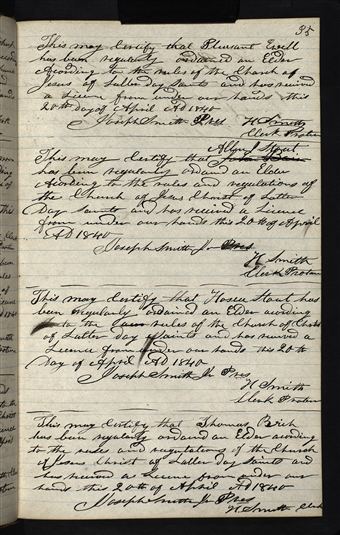 35
This may Certify that Pleasant Ewell
has been regularly ordained an Elder
According to the rules of the Church of
Jesus of Latter day Saints and has received
a Licence from under our hands this
20th day of April AD 1840
Joseph Smith Pres
H Smith
Clerk Protem
Allen J Stout
This may Certify that
has been regularly ordaind an Elder
Acording to the rules and regulations of
the Church of Jesus Christ of Latter
Day Saints and has received a Licence
from under our hands this 20th of April
AD 1840
Joseph Smith Jr Pres
H Smith
Clerk Protem
This may Certify that Hosea Stout has
been regularly ordained an Elder acording
to the Laws rules of the Church of Christ
of Latter day Saints and has received a
Licence from under our hands this 20th
Day of April AD 1840
Joseph Smith Jr Pres
H Smith
Clerk Protem
This may Certify that Thomas Rich
has been regularly ordaind an Elder acording
to the rules and regulations of the Church
of Jesus Christ of Latter day Saints and
has received a Licence from under our
hands this 20th of April AD 1840
Joseph Smith Jr Pres
H Smith Clerk